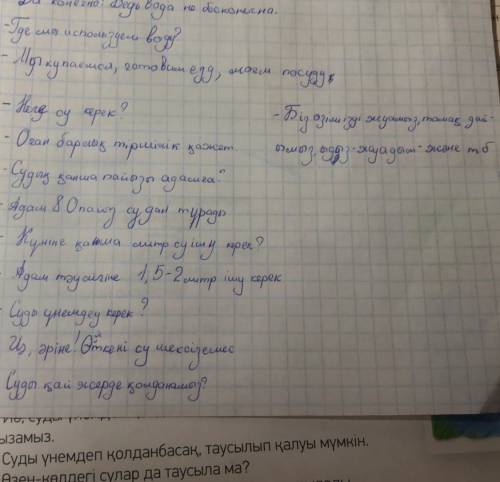 Да конечно! Ведь вода не бесконечна.
-Где мы используем воду?
- Мы купаемся, готовим еду, моем посуду,
- Неге су керек?
- Оған барлық тіршілік қажет.
- Судың қанша пайызы адамға?
- Адам 80 пайыз судан тұрады
- Күніне қанша литр су ішу керек?
- Адам тәулігіне 1,5-2 литр ішу керек
- Суды үнемдеу керек?
Иә, әрине! Өйткені су шексіз емес
Суды қай жерде қолданамыз?
- Біз өзімізді жуамыз, тамақ дай-
ымыз, ыдыс-жуадым-және т б
ызамыз.
Суды үнемдеп қолданбасақ, таусылып қалуы мүмкін.
Өзен-көлдегі сулар да таусыла ма?